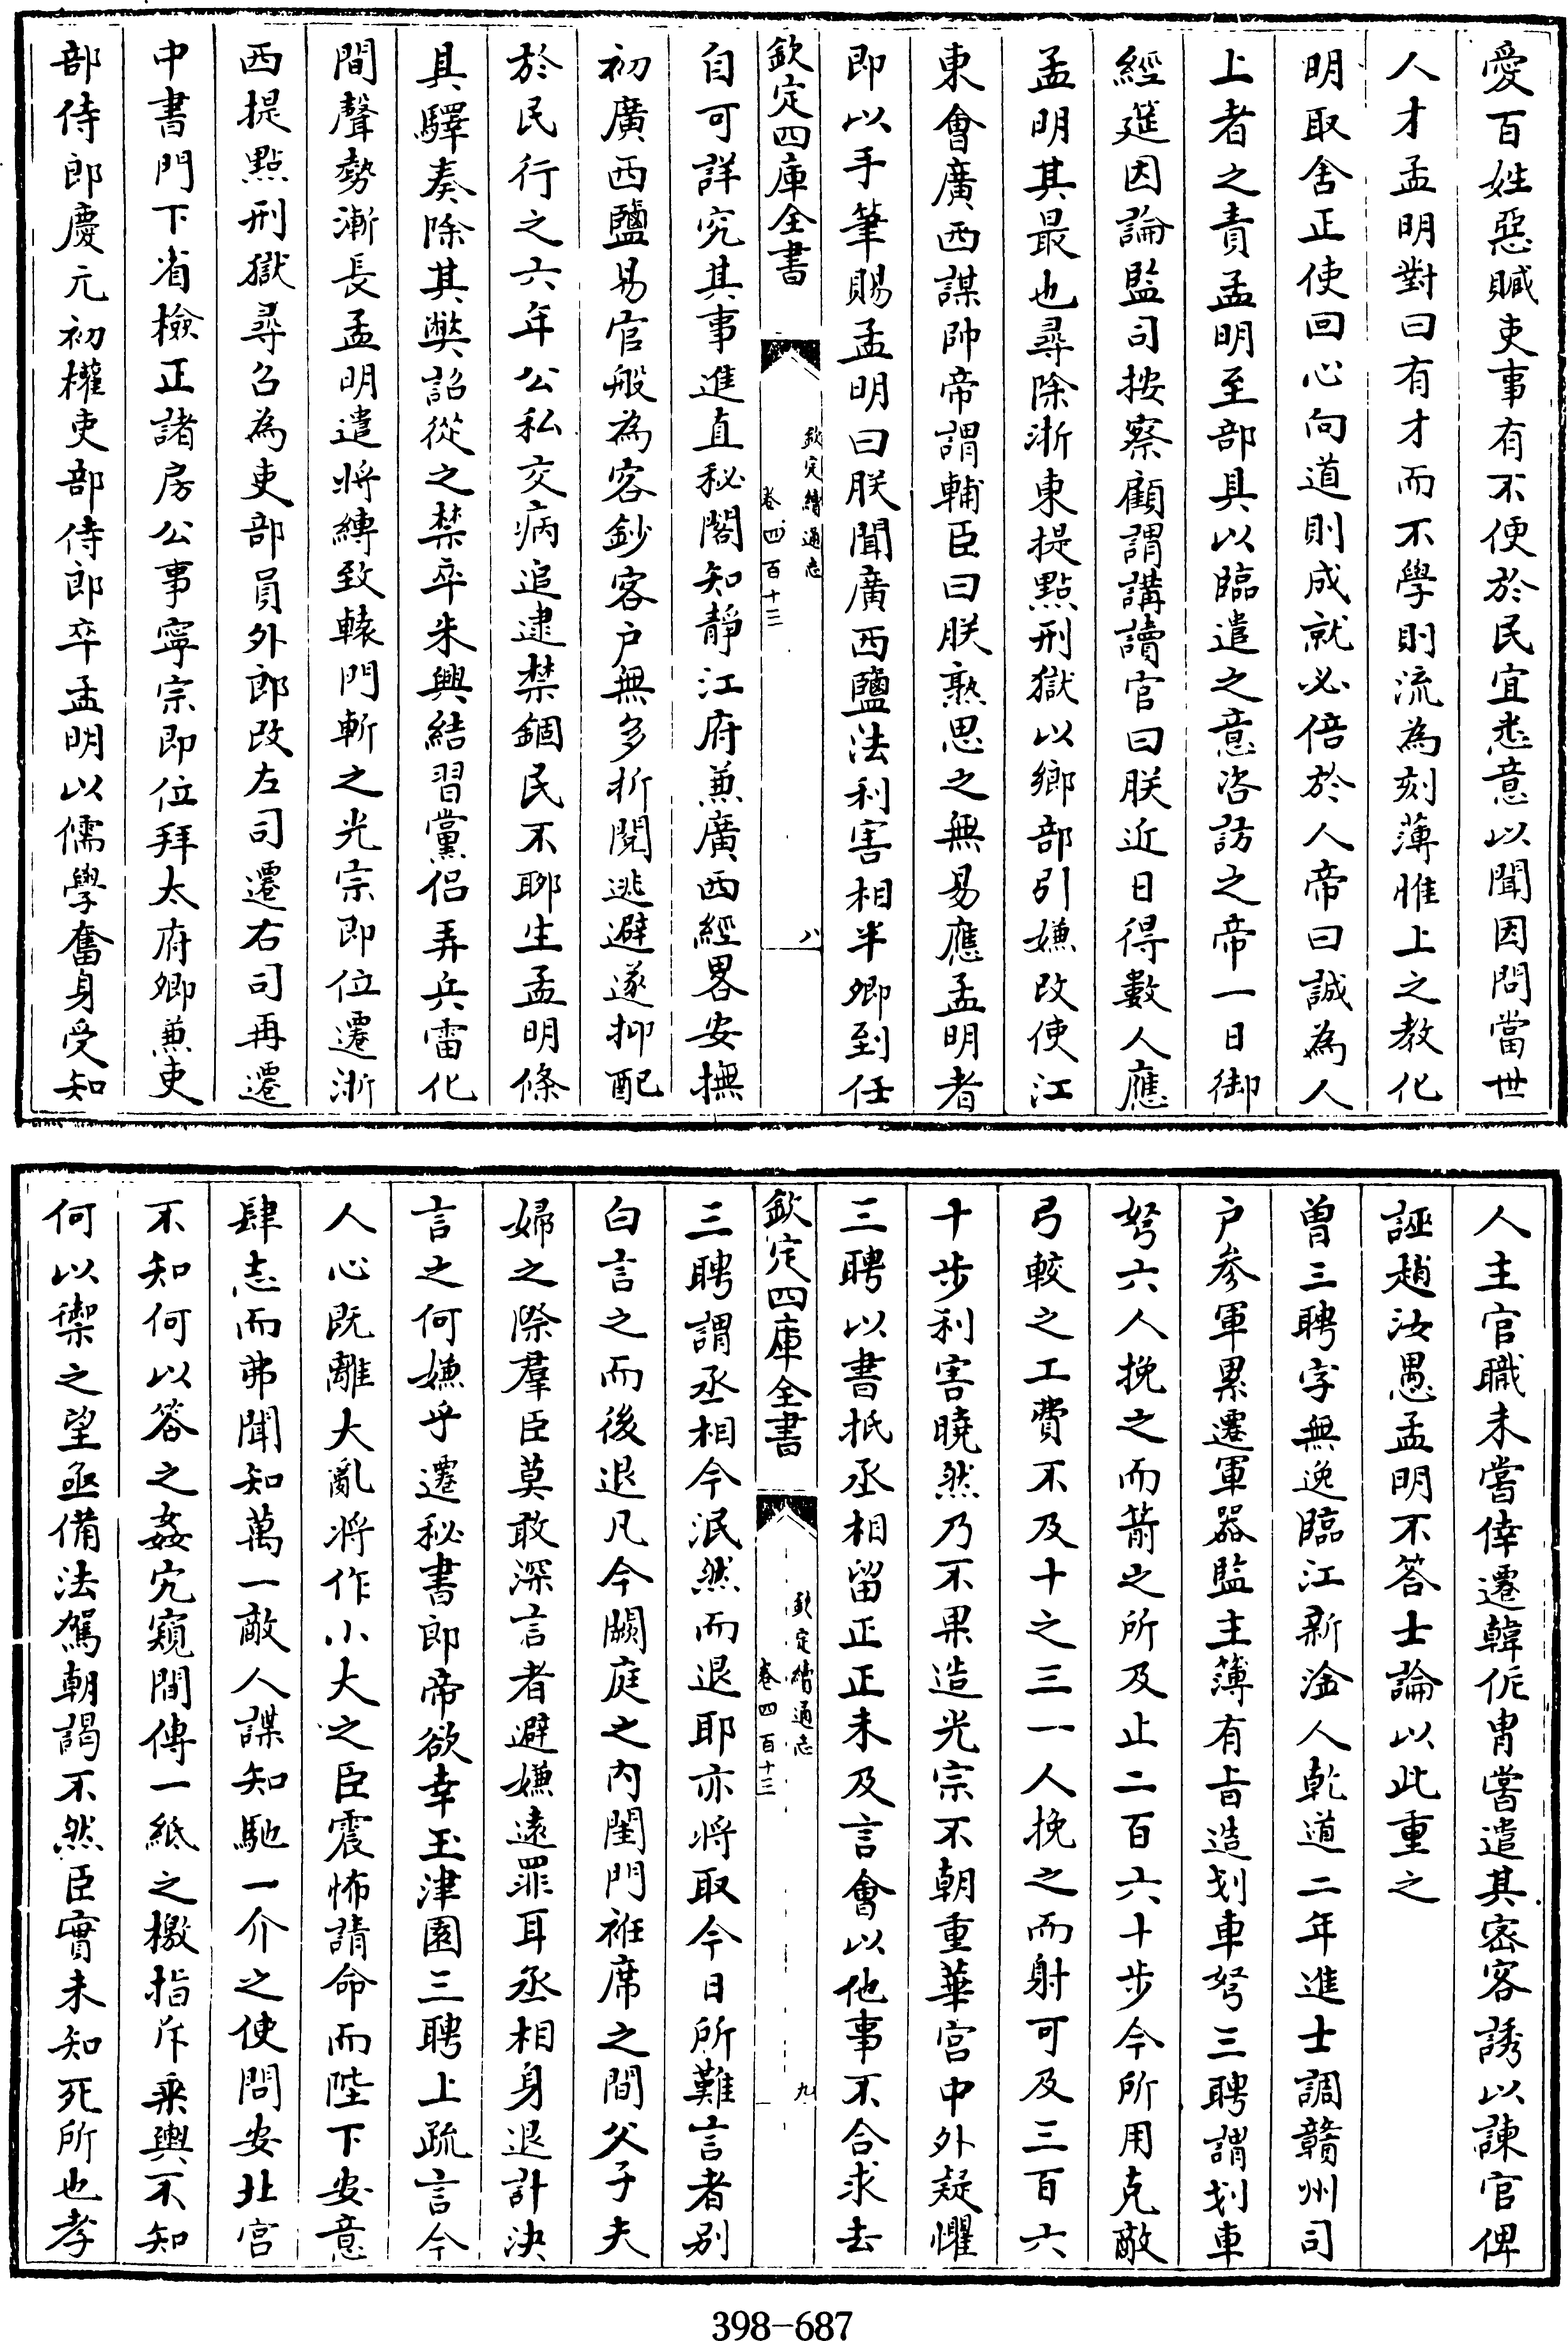 愛百姓惡贓吏事有不便於民宜悉意以聞因問當世
人才孟明對曰有才而不學則流為刻薄惟上之教化
明取舍正使回心向道則成就必倍於人帝曰誠為人
上者之責孟明至部具以臨遣之意咨訪之帝一日御
經筵因論監司按察顧謂講讀官曰朕近日得數人應
孟明其最也尋除浙東提點刑獄以鄉部引嫌改使江
東會廣西謀帥帝謂輔臣曰朕熟思之無易應孟明者
即以手筆賜孟明曰朕聞廣西鹽法利害相半卿到任
欽定四庫全書
欽定續通志
卷四百十三
八
自可詳究其事進直秘閣知靜江府兼廣西經畧安撫
初廣西鹽易官般為客鈔客户無多折閱逃避遂抑配
於民行之六年公私交病追逮禁錮民不聊生孟明條
具驛奏除其弊詔從之禁卒朱興結習黨侣弄兵雷化
間聲勢漸長孟明遣將縛致轅門斬之光宗即位遷浙
西提點刑獄尋召為吏部員外郎改左司遷右司再遷
中書門下省檢正諸房公事寧宗即位拜太府卿兼吏
部侍郎慶元初權吏部侍郎卒孟明以儒學奮身受知
人主官職未嘗倖遷韓侂胄嘗遣其密客誘以諫官俾
誣趙汝愚孟明不答士論以此重之
曾三聘字無逸臨江新淦人乾道二年進士調贛州司
户參軍累遷軍器監主薄有旨造划車弩三聘謂划車
弩六人挽之而箭之所及止二百六十步今所用克敵
弓較之工費不及十之三一人挽之而射可及三百六
十步利害曉然乃不果造光宗不朝重華宫中外疑懼
三聘以書抵丞相留正正未及言會以他事不合求去
欽定四庫全書
欽定續通志
卷四百十三
九
三聘謂丞相今泯然而退耶亦將取今日所難言者别
白言之而後退凡今闕庭之内閨門袵席之間父子夫
婦之際羣臣莫敢深言者避嫌遠罪耳丞相身退計決
言之何嫌乎遷秘書郎帝欲幸玉津園三聘上疏言今
人心既離大亂將作小大之臣震怖請命而陛下安意
肆志而弗聞知萬一敵人諜知馳一介之使問安北宫
不知何以答之姦宄窺間傳一紙之檄指斥乘輿不知
何以禦之望亟備法駕朝謁不然臣實未知死所也孝
398-687